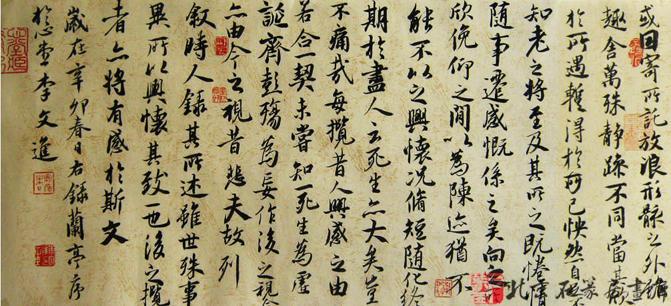 或因寄所託放浪形骸之外雖
趣舍萬殊靜躁不同當其
於所遇輒得於己快然自
知老之將至及其所之既惓
隨事遷感慨係之矣向之
欣俛仰之間以為陳迹猶不
能不以之興懷況脩短隨化終
期於盡人云死生亦大矣豈
不痛哉每攬昔人興感之由
若合一契未嘗知一死生為虛
誕齊彭殤為妄作後之視今
亦由今之視昔悲夫故列
敘時人錄其所述雖世殊事
異所以興懷其致一也後之攬
者亦將有感於斯文
歲在辛卯春日右錄蘭亭序
李文進